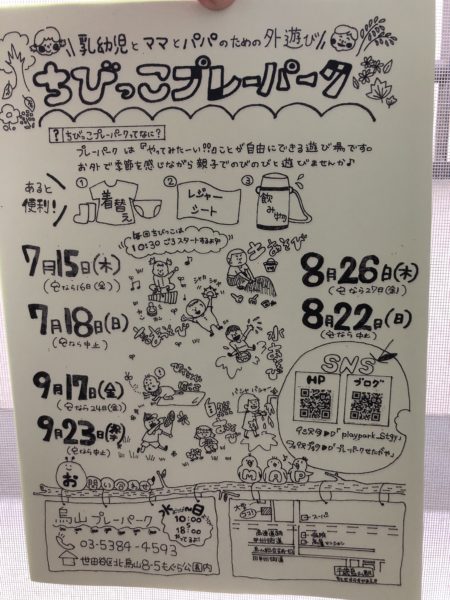 乳幼児とママとパパのための外遊び
ちびっこプレーパーク
? ちびっこプレーパークってなに? ?
プレーパークは『やってみたーい!!』ことが自由にできる遊び場です。
お外で季節を感じながら親子でのびのびと遊びませんか♪
あると便利!
① 着替え
② レジャーシート
③ 飲み物
毎回ちびっこは
10:30ごろスタートするよ
7月15日(木)
なら16日(金)
7月18日(日)
なら中止
9月17日(金)
なら24日(金)
9月23日
なら中止
8月26日(木)
なら27日(金)
8月22日(日)
なら中止
水あそび
SNS
HP
ブログ
「playpark_stgy」
「プレーパークせたがや」
お問い合わせ
MAP
烏山プレーパーク
03-5384-4593
世田谷区北烏山8-5もぐら公園内
10:00
18:00
スーパー